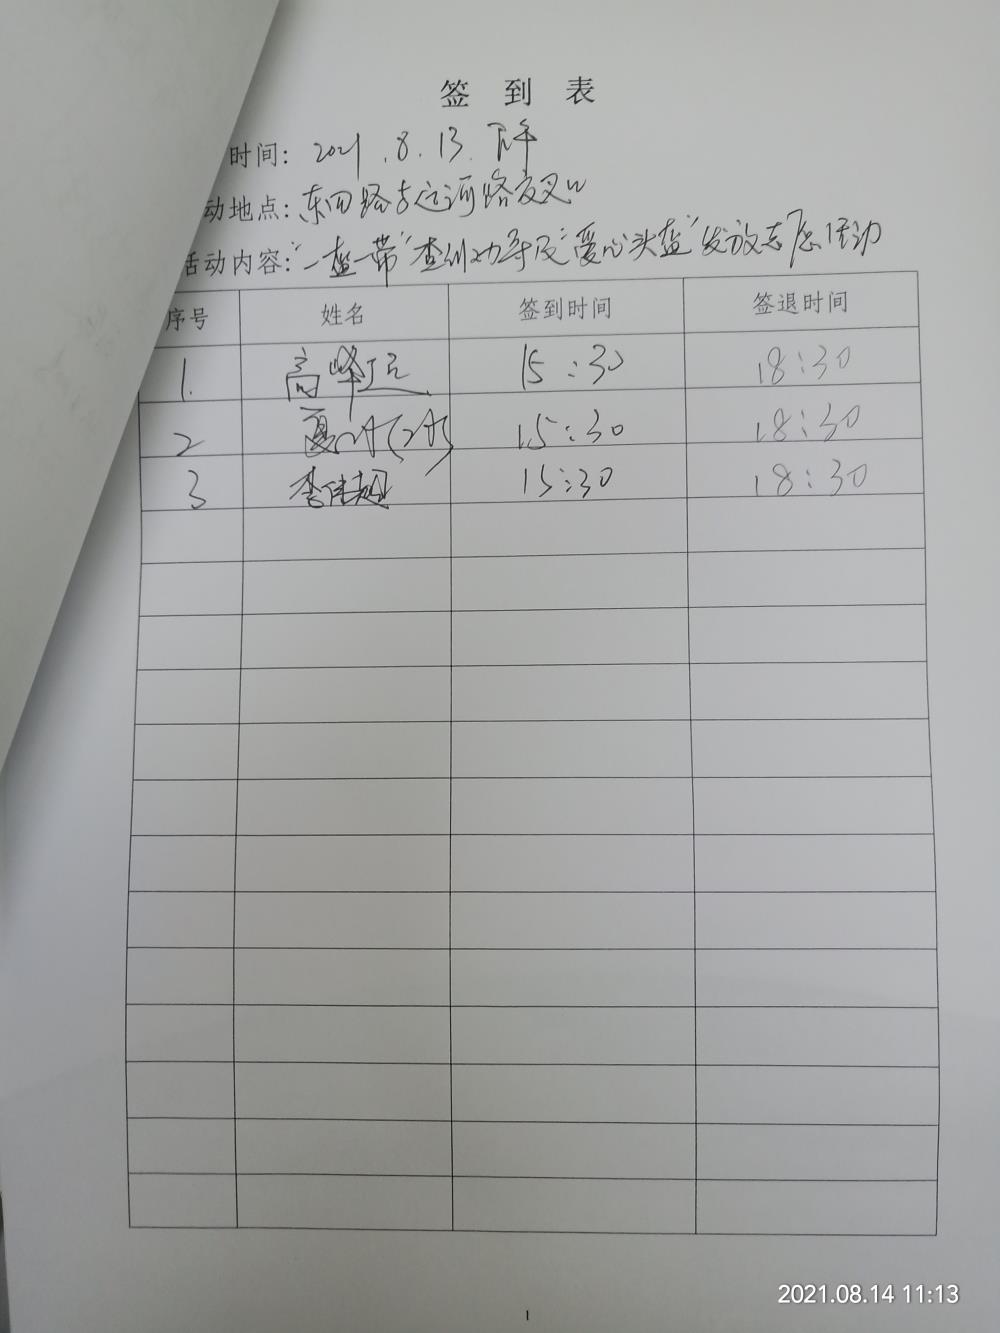 签到表
时间：2021.8.13.下午
动地点：东四路与运河路交叉口
活动内容："一盔一带"查纠劝导及"爱心头盔"发放志愿活动
序号 姓名 签到时间 签退时间
1. 高峰 15:30 18:30
2 夏 15:30 18:30
3 李伟超 15:30 18:30
2021.08.14 11:13
1